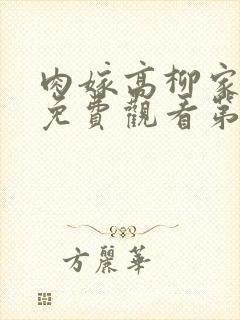 肉嫁高柳家
免費觀看第
方麗華